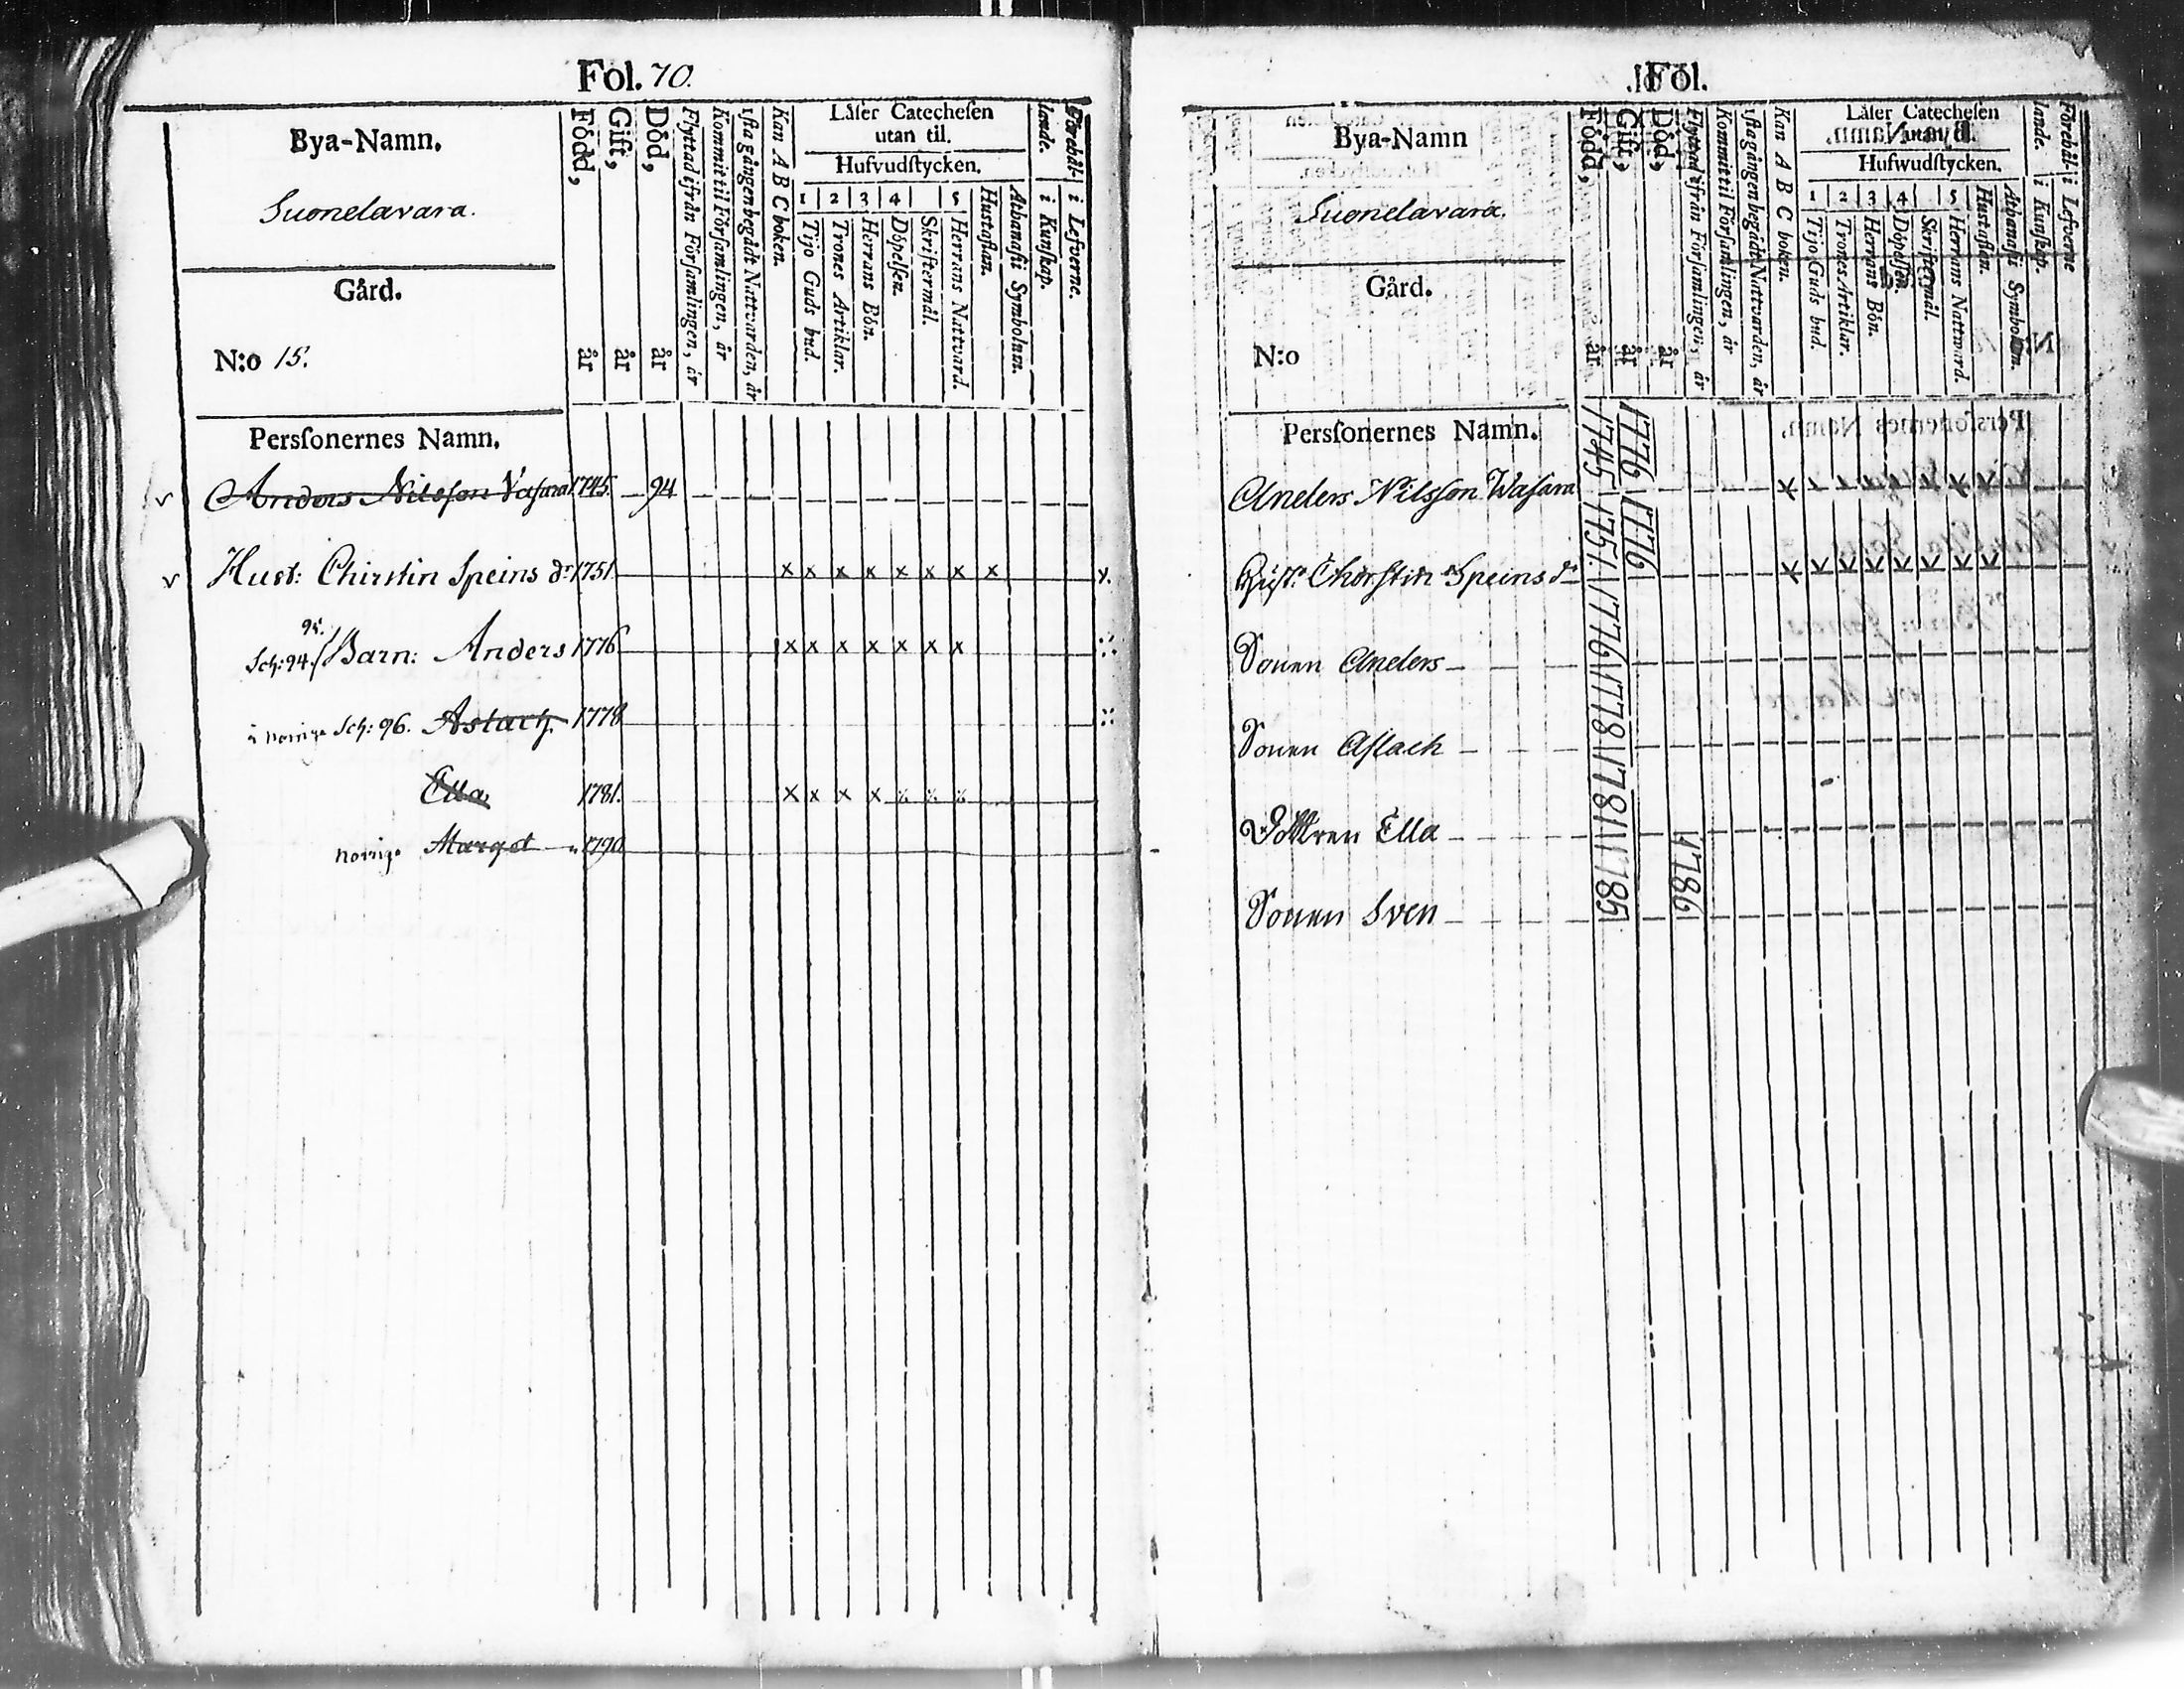 Fol. 70.
Bya-Namn.
Suonelavara.
Gård.
N:o 15.
Född, år
Gift, år
Död, år
Flyttad ifrån Församlingen, år
Kommit til Församlingen, år
1sta gången begådt Nattvarden, år
Kan A B C boken.
Låser Catecheſen
utan til.
Hufvudſtycken.
1 2 3 4 5
Tijo Guds bud.
Trones Artiklar.
Herrans Bön.
Döpelſen.
Skriftermål.
Herrans Nattvard.
Hustaflan.
Athanaſii Symbolum.
Förehål-
lande.
i Kunſkap.
i Lefverne.
Persſonernes Namn.
v Anders Nilsſon Vaſara 1745. 94
v Hust: Chirstin Speins dr 1751. x x x x x x x x x.
95.
Sch: 94. Barn: Anders 1776 x x x x x x x
Sch: 96. Aslach. 1778
Ella 1781. x x x x
norrige Margot 1790
Fol.
Bya-Namn
Suonelavara.
Gård.
N:o
Född, år
Gift, år
Död, år
Flyttad ifrån Församlingen, år
Kommit til Församlingen, år
1sta gången begådt Nattvarden, år
Kan A B C boken.
Låſer Catecheſen
utan til.
Hufwudſtycken.
1 2 3 4 5
Tijo Guds bud.
Trones Artiklar.
Herrans Bön.
Döpelſen.
Skriftermål.
Herrans Nattward.
Hustaflen.
Athanaſii Symbolum.
Förehål-
lande.
i Kunſkap.
i Lefverne
Persſonernes Namn.
Anders Nilsſon Waſara 1745 1776
Hust: Chorſtin Speins dr 1751. 1776
Sonen Anders 1776
Sonen Aſlach 1778
Dottren Ella 1781
Sonen Sven 1785 1786